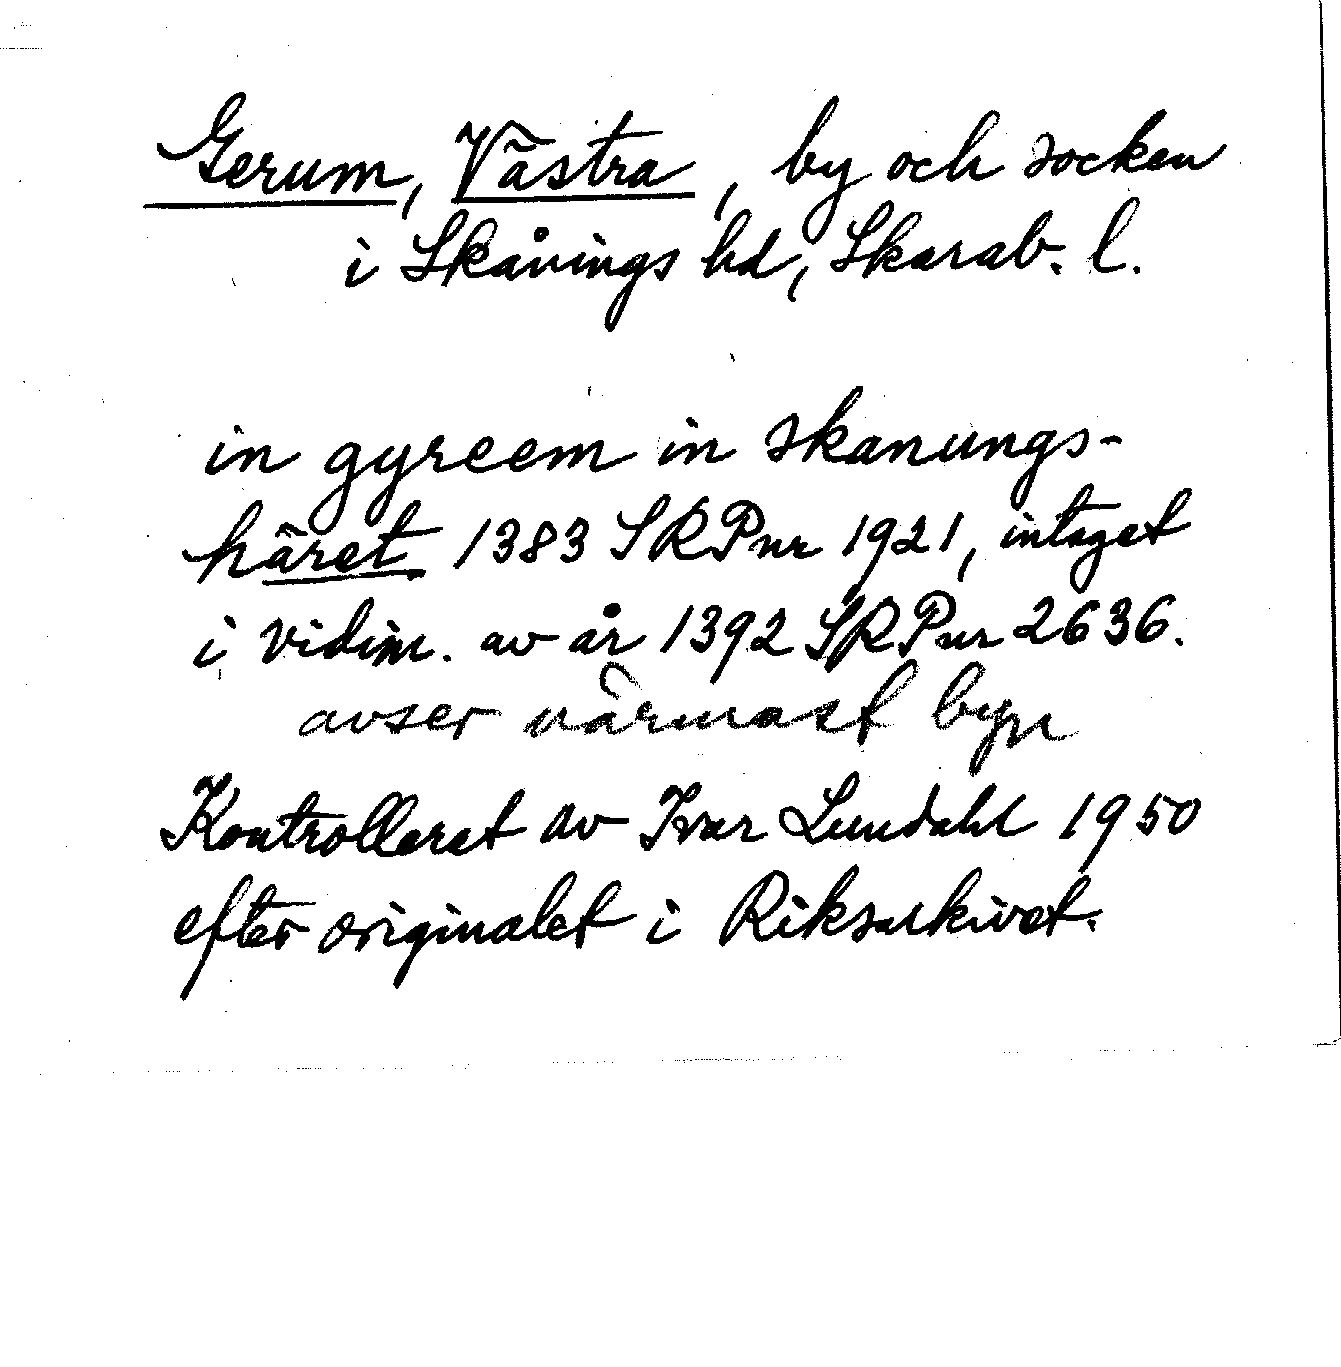 Gerum, Västra, by och socken
i Skånings hd, Skarab. l.
in gyreem in skanungs-
häret 1383 SRP nr 1921, intaget
i vidim. av år 1392 SRP nr 2636.
avser närmast byn
Kontrollerat av Ivar Lundahl 1950
efter originalet i Riksarkivet.